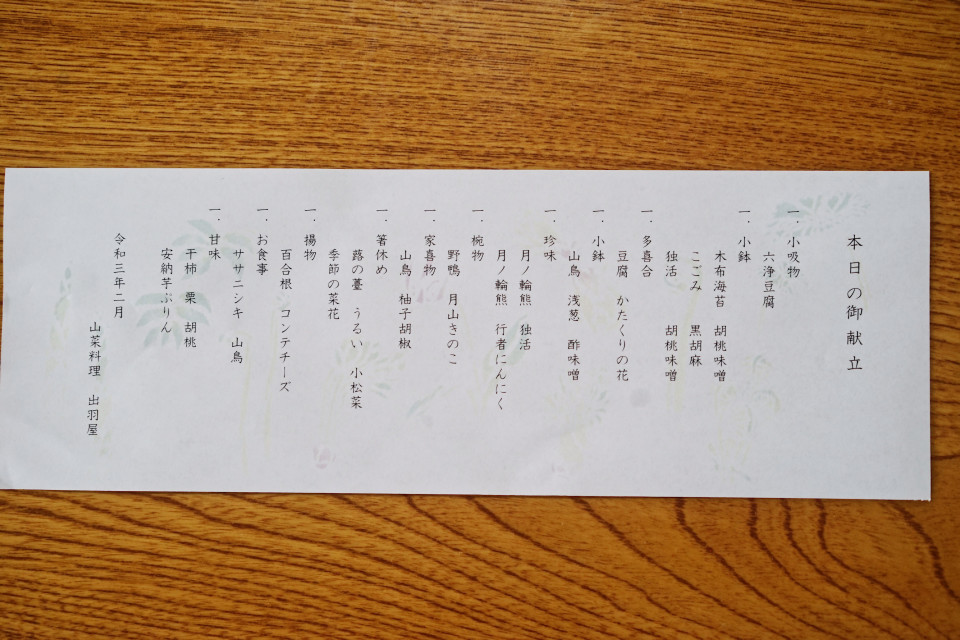 本日の御献立
一．小吸物
六浄豆腐
一．小鉢
木布海苔　胡桃味噌
こごみ　黒胡麻
独活　胡桃味噌
一．多喜合
豆腐　かたくりの花
一．小鉢
山鳥　浅葱　酢味噌
一．珍味
月ノ輪熊　独活
月ノ輪熊　行者にんにく
一．椀物
野鴨　月山きのこ
一．家喜物
山鳥　柚子胡椒
一．箸休め
蕗の薹　うるい　小松菜
季節の菜花
一．揚物
百合根　コンテチーズ
一．お食事
ササニシキ　山鳥
一．甘味
干柿　栗　胡桃
安納芋ぷりん
令和三年二月
山菜料理　出羽屋